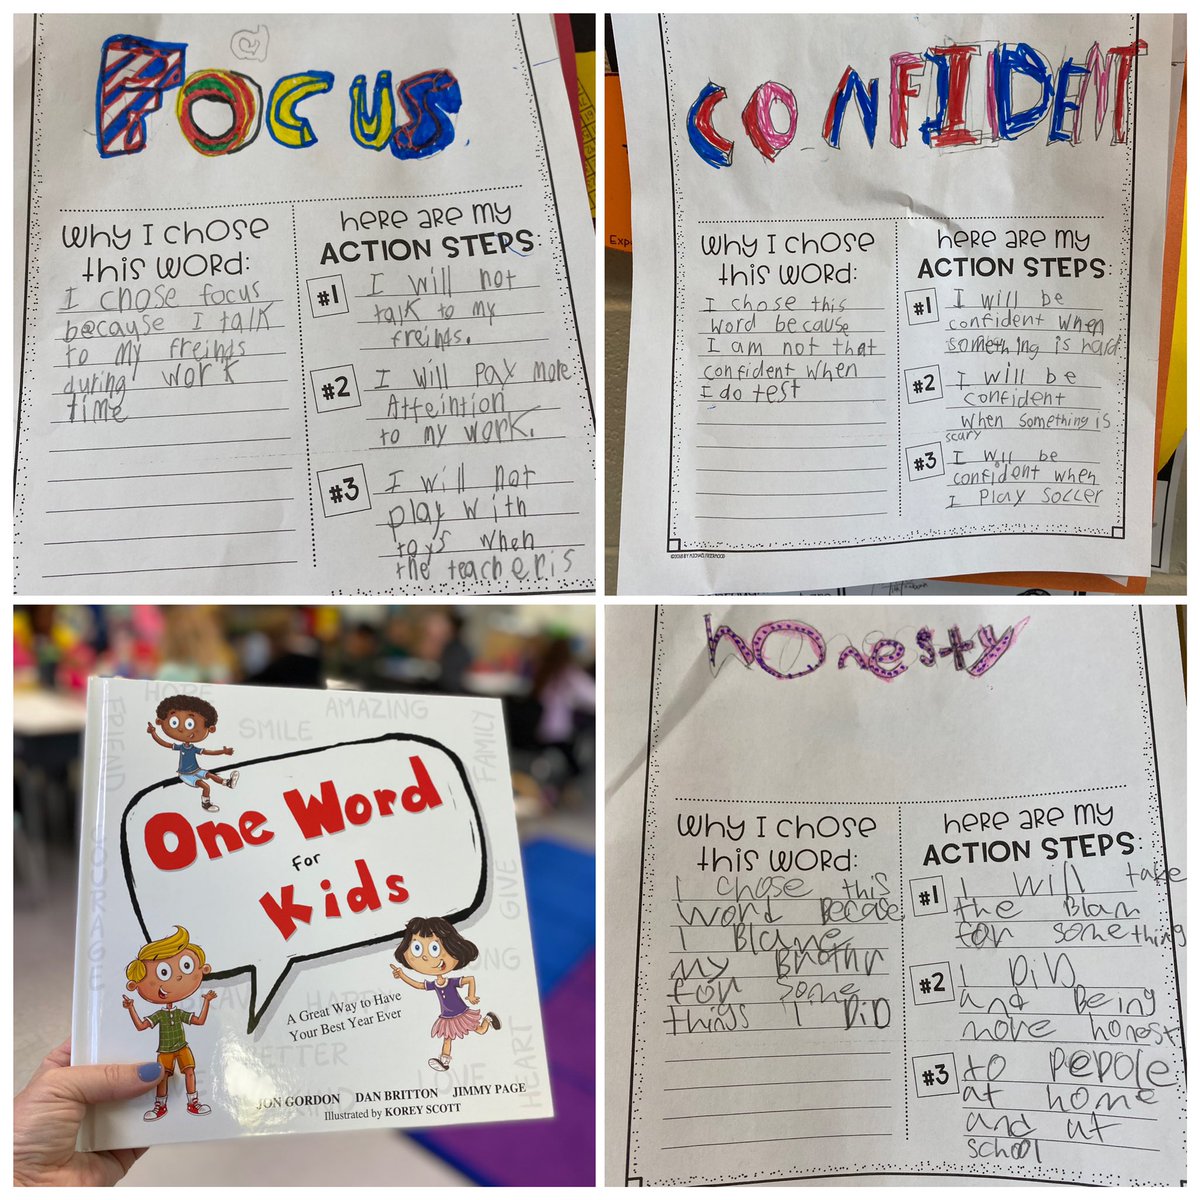 FOCUS
WHY I CHOSE
THIS WORD:
I chose focus
because I talk
to my freinds
during work
time
HERE ARE MY
ACTION STEPS:
#1
I will not
talk to my
freinds.
#2
I will Pay more
Atteintion
to my work.
#3
I will not
play with
toys when
the teacher is
CONFIDENT
WHY I CHOSE
THIS WORD:
I chose this
word because
I am not that
confident when
I do test
HERE ARE MY
ACTION STEPS:
#1
I will be
confident when
something is hard
#2
I will be
confident
when something is
scary
#3
I will be
confident when
I Play soccer
HOPE
SMILE
AMAZING
FRIEND
FAMILY
COURAGE
GIVE
HAPPY
LOVE
HEART
One Word
for
Kids
A Great Way to Have
Your Best Year Ever
JON GORDON DAN BRITTON JIMMY PAGE
Illustrated by KOREY SCOTT
honesty
WHY I CHOSE
THIS WORD:
I chose this
word Becaue
I Blame
my Brothr
for some
things I DiD
HERE ARE MY
ACTION STEPS:
#1
I will take
the Blam
for something
#2
I DiD
and Being
more honest
#3
to pepole
at home
and at
school